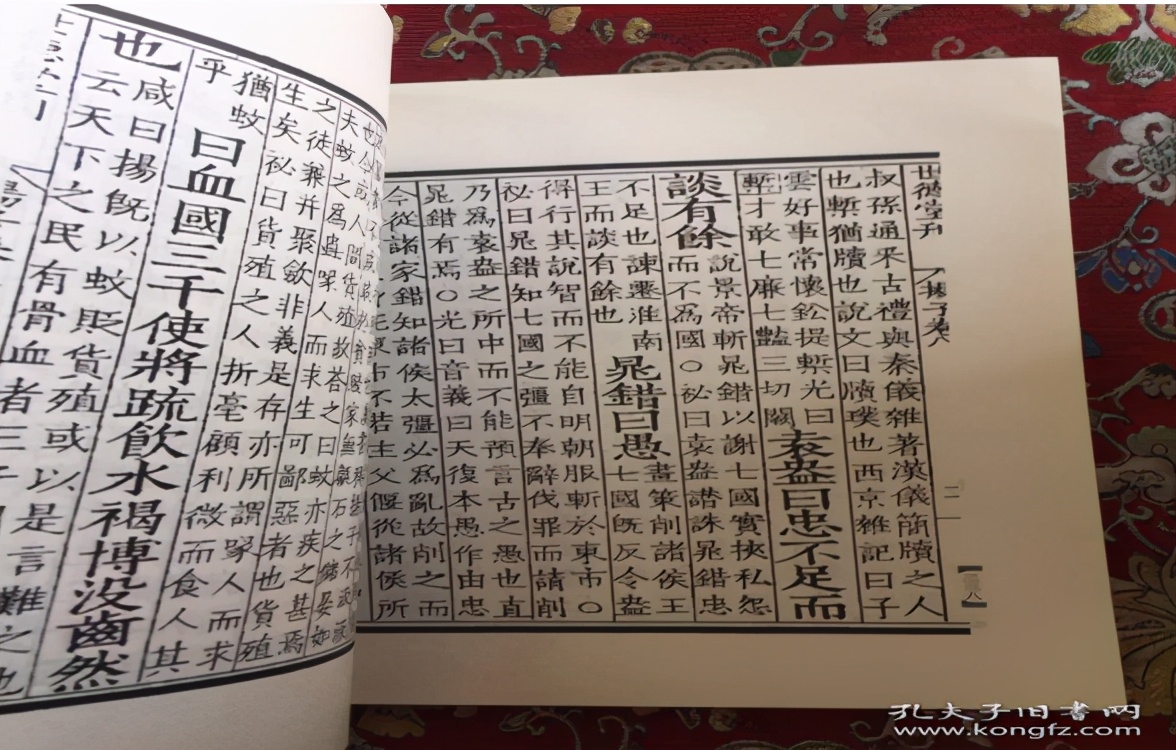 世德堂刊
子卷八
叔孫通采古禮與秦儀雜著漢儀簡牘之人
也槧猶牘也說文曰牘璞也西京雜記曰子
雲好事常懷鈆提槧光曰
槧才敢七廉七豔三切闕
袁盎曰忠不足而
談有餘
說景帝斬晁錯以謝七國實挾私怨
而不為國○祕曰袁盎譖誅晁錯忠
不足也諫遷淮南
王而談有餘也
晁錯曰愚
畫策削諸侯王
七國旣反令盎
得行其說智而不能自明朝服斬於東市○
祕曰晁錯知七國之彊不奉辭伐罪而請削
乃為袁盎之所中而不能預言古之愚也直
晁錯有焉○光曰音義曰天復本愚作由忠
今從諸家錯知諸侯太彊必為亂故削之而
死東市不若主父偃從諸侯所
夫蚊之為蟲㗖人而求生可鄙惡者也貨殖
之徒兼并聚斂非義是存亦所謂㗖人而求
生矣祕曰貨殖之人折毫顧利微而食人其
猶蚊
乎
曰血國三千使將疏飲水褐博没齒然
也
咸曰揚旣以蚊貶貨殖或以是言難之也
云天下之民有骨血者三千
孔夫子旧书网
www.kongfz.com